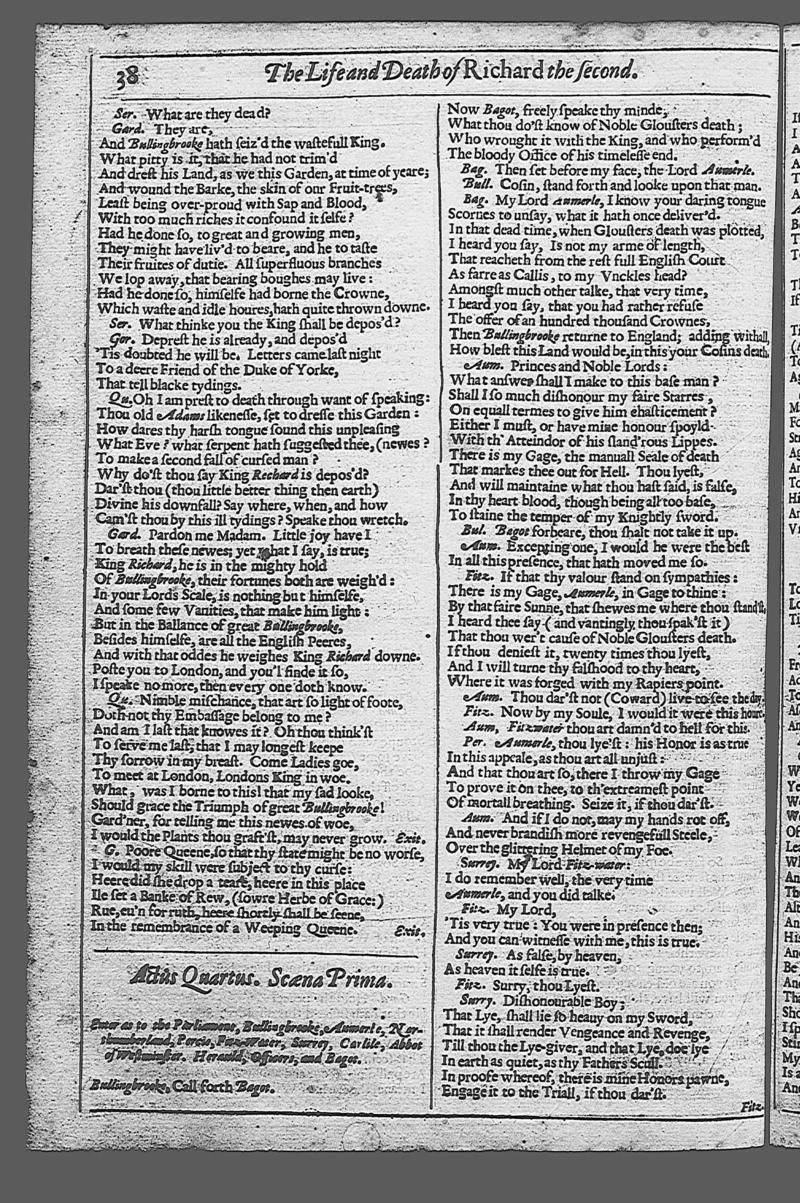 38
The Life and Death of Richard the second.
Ser. What are they dead?
Gard. They are,
And Bullingbrooke hath ſeiz'd the waſtefull King.
What pitty is it, that he had not trim'd
And dreſt his Land, as we this Garden, at time of yeare;
And wound the Barke, the skin of our Fruit-trees,
Leaſt being over-proud with Sap and Blood,
With too much riches it confound it ſelfe?
Had he done ſo, to great and growing men,
They might have liv'd to beare, and he to taſte
Their fruites of dutie. All ſuperfluous branches
We lop away, that bearing boughes may live:
Had he done ſo, himſelfe had borne the Crowne,
Which waſte and idle houres, hath quite thrown downe.
Ser. What thinke you the King ſhall be depos'd?
Gar. Depreſt he is already, and depos'd
'Tis doubted he will be. Letters came laſt night
To a deere Friend of the Duke of Yorke,
That tell blacke tydings.
Qu. Oh I am preſt to death through want of ſpeaking:
Thou old Adams likeneſſe, ſet to dreſſe this Garden:
How dares thy harſh tongue ſound this unpleaſing
What Eve? what ſerpent hath ſuggeſted thee, (newes?
To make a ſecond fall of curſed man?
Why do'ſt thou ſay King Rechard is depos'd?
Dar'ſt thou (thou little better thing then earth)
Divine his downfall? Say where, when, and how
Cam'ſt thou by this ill tydings? Speake thou wretch.
Gard. Pardon me Madam. Little joy have I
To breath theſe newes; yet what I ſay, is true;
King Richard, he is in the mighty hold
Of Bullingbrooke, their fortunes both are weigh'd:
In your Lords Scale, is nothing but himſelfe,
And ſome few Vanities, that make him light:
But in the Ballance of great Bullingbrooke,
Beſides himſelfe, are all the Engliſh Peeres,
And with that oddes he weighes King Richard downe.
Poſte you to London, and you'l finde it ſo,
I ſpeake no more, then every one doth know.
Qu. Nimble miſchance, that art ſo light of foote,
Doth not thy Embaſſage belong to me?
And am I laſt that knowes it? Oh thou think'ſt
To ſerve me laſt, that I may longeſt keepe
Thy ſorrow in my breaſt. Come Ladies goe,
To meet at London, Londons King in woe.
What, was I borne to this! that my ſad looke,
Should grace the Triumph of great Bullingbrooke!
Gard'ner, for telling me this newes of woe,
I would the Plants thou graft'ſt, may never grow. Exit.
G. Poore Queene, ſo that thy ſtate might be no worſe,
I would my skill were ſubject to thy curſe:
Heere did ſhe drop a teare, heere in this place
Ile ſet a Banke of Rew, (ſowre Herbe of Grace:)
Rue, eu'n for ruth, heere ſhortly ſhall be ſeene,
In the remembrance of a Weeping Queene. Exit.
Actûs Quartus. Scæna Prima.
Enter as to the Parliament, Bullingbrooke, Aumerle, Nor-
thumberland, Percie, Fitz-Water, Surrey, Carlile, Abbot
of Weſtminſter. Herauld, Officers, and Bagot.
Bullingbrooke. Call forth Bagot.
Now Bagot, freely ſpeake thy minde,
What thou do'ſt know of Noble Glouſters death;
Who wrought it with the King, and who perform'd
The bloody Office of his timeleſſe end.
Bag. Then ſet before my face, the Lord Aumerle.
Bull. Coſin, ſtand forth and looke upon that man.
Bag. My Lord Aumerle, I know your daring tongue
Scornes to unſay, what it hath once deliver'd.
In that dead time, when Glouſters death was plotted,
I heard you ſay, Is not my arme of length,
That reacheth from the reſt full Engliſh Court
As farre as Callis, to my Vnckles head?
Amongſt much other talke, that very time,
I heard you ſay, that you had rather refuſe
The offer of an hundred thouſand Crownes,
Then Bullingbrooke returne to England; adding withall,
How bleſt this Land would be, in this your Coſins death.
Aum. Princes and Noble Lords:
What anſwer ſhall I make to this baſe man?
Shall I ſo much diſhonour my faire Starres,
On equall termes to give him chaſticement?
Either I muſt, or have mine honour ſpoyld
With th' Atteindor of his ſland'rous Lippes.
There is my Gage, the manuall Seale of death
That markes thee out for Hell. Thou lyeſt,
And will maintaine what thou haſt ſaid, is falſe,
In thy heart blood, though being all too baſe,
To ſtaine the temper of my Knightly ſword.
Bul. Bagot forbeare, thou ſhalt not take it up.
Aum. Excepting one, I would he were the beſt
In all this preſence, that hath moved me ſo.
Fitz. If that thy valour ſtand on ſympathies:
There is my Gage, Aumerle, in Gage to thine:
By that faire Sunne, that ſhewes me where thou ſtand'ſt,
I heard thee ſay (and vantingly thou ſpak'ſt it)
That thou wer't cauſe of Noble Glouſters death.
If thou denieſt it, twenty times thou lyeſt,
And I will turne thy falſhood to thy heart,
Where it was forged with my Rapiers point.
Aum. Thou dar'ſt not (Coward) live to ſee the day.
Fitz. Now by my Soule, I would it were this houre.
Aum. Fitzwater thou art damn'd to hell for this.
Per. Aumerle, thou lye'ſt: his Honor is as true
In this appeale, as thou art all unjuſt:
And that thou art ſo, there I throw my Gage
To prove it on thee, to th'extreameſt point
Of mortall breathing. Seize it, if thou dar'ſt.
Aum. And if I do not, may my hands rot off,
And never brandiſh more revengefull Steele,
Over the glittering Helmet of my Foe.
Surrey. My Lord Fitz-water:
I do remember well, the very time
Aumerle, and you did talke.
Fitz. My Lord,
'Tis very true: You were in preſence then;
And you can witneſſe with me, this is true.
Surrey. As falſe, by heaven,
As heaven it ſelfe is true.
Fitz. Surry, thou Lyeſt.
Surry. Diſhonourable Boy;
That Lye, ſhall lie ſo heauy on my Sword,
That it ſhall render Vengeance and Revenge,
Till thou the Lye-giver, and that Lye, doe lye
In earth as quiet, as thy Fathers Scull.
In proofe whereof, there is mine Honors pawne,
Engage it to the Triall, if thou dar'ſt.
Fitz.